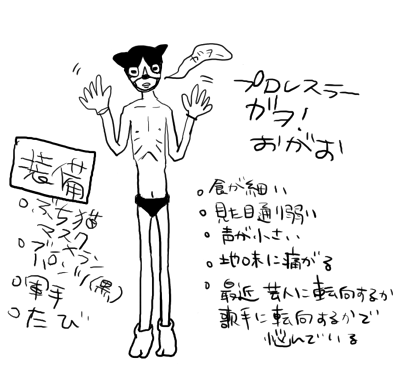 ガヲー
プロレスラー
ガヲ!
おがお
装備
○ぶち猫
マスク
○ブーメラン
パンツ(黒)
○軍手
○たび
○食が細い
○見た目通り弱い
○声が小さい
○地味に痛がる
○最近 芸人に転向するか
歌手に転向するかで
悩んでいる